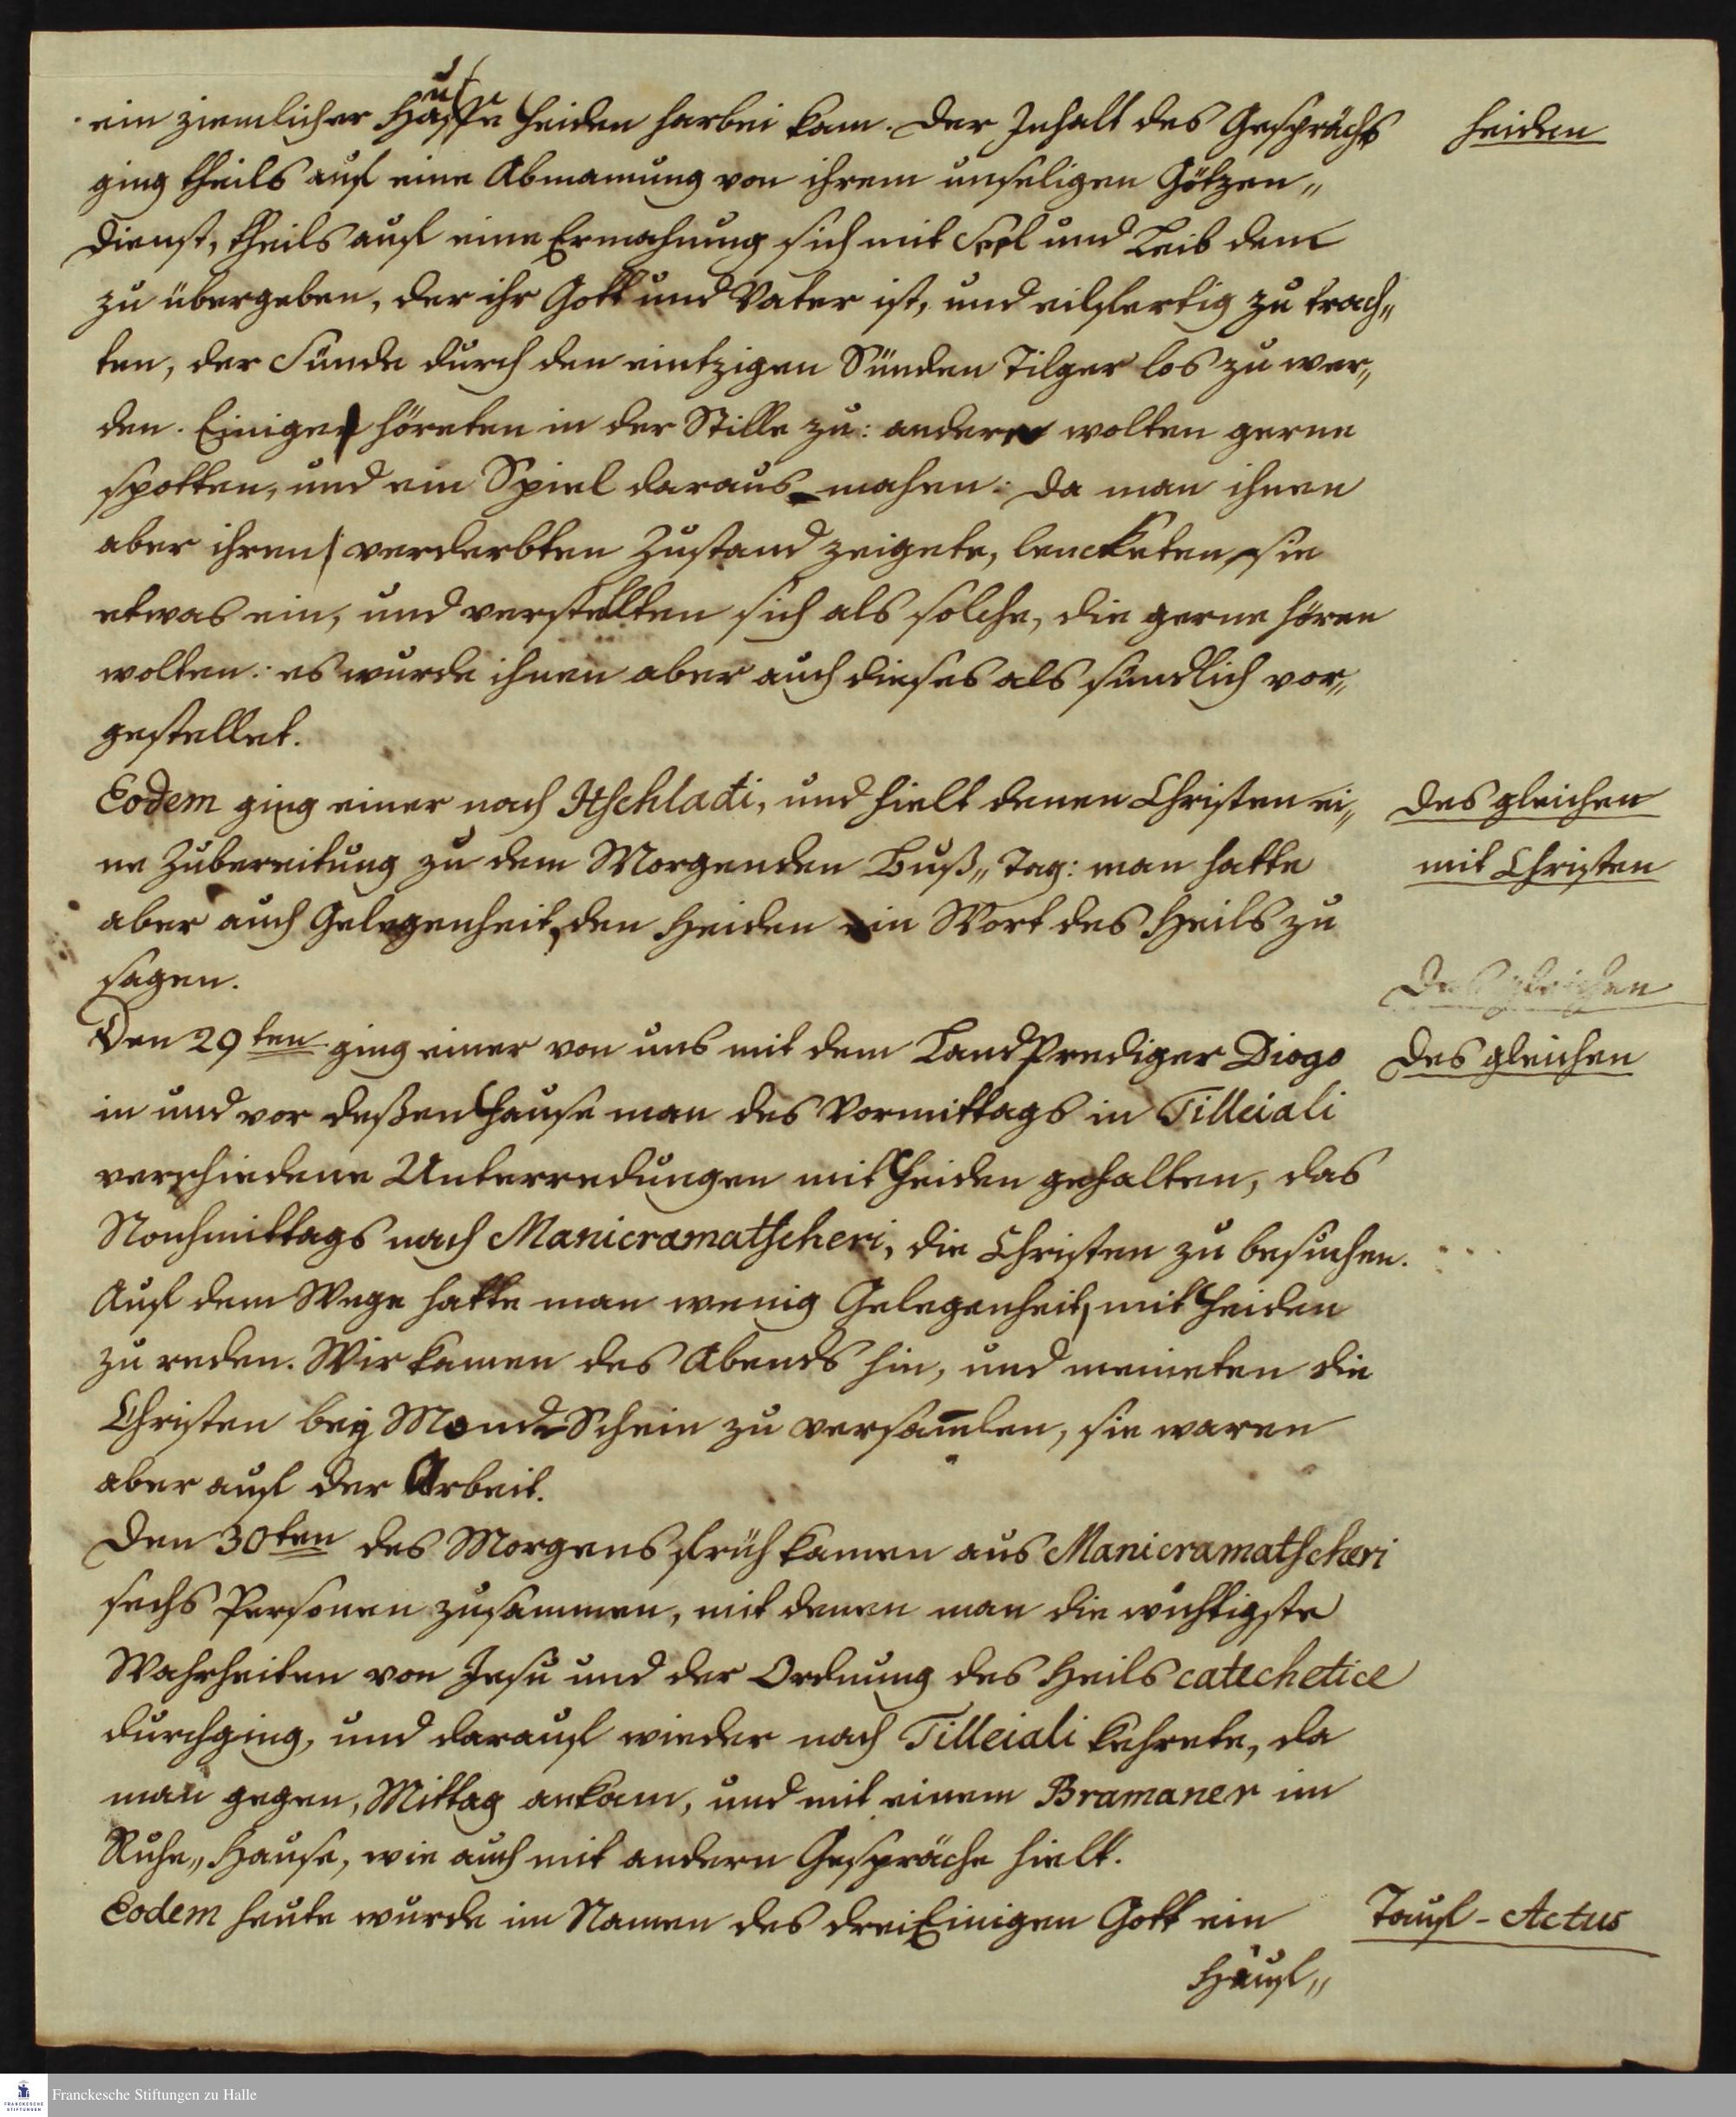 ein ziemlicher Hauffe Heiden harbei kam. Der Inhalt des Gesprächs
Heiden
ging theils auf eine Abmanung von ihrem unseligen Götzen„
Dienst, theils auf eine Ermahnung sich mit Seel und Leib dem
zu übergeben, der ihr Gott und Vater ist, und eilfertig zu trach„
ten, der Sünde durch den eintzigen Sünden Tilger los zu wer„
den. Einige höreten in der Stille zu: andere wolten gerne
spotten, und ein Spiel daraus mahen: da man ihnen
aber ihren verderbten Zustand zeigete, lencketen sie
etwas ein, und verstellten sich als solche, die gerne hören
wolten: es wurde ihnen aber auch dieses als sündlich vor„
gestellet.
Eodem ging einer nach Itschladi, und hielt denen Christen ei„
Desgleichen
ne Zubereitung zu dem Morgenden Buß„Tag: man hatte
mit Christen
aber auch Gelegenheit, den Heiden ein Wort des Heils zu
sagen.
Desgleichen
Den 29ten ging einer von uns mit dem LandPrediger Diogo
Desgleichen
in und vor deßen Hause man des Vormittags in Tilleiali
verschiedene Unterredungen mit Heiden gehalten, das
Nachmittags nach Manicramatscheri, die Christen zu besuchen.
Auf dem Wege hatte man wenig Gelegenheit, mit Heiden
zu reden. Wir kamen des Abends hin, und meineten die
Christen bey Mond-Schein zu versam̅len, sie waren
aber auf der Arbeit.
Den 30ten des Morgens früh kamen aus Manicramatscheri
sechs Personen zusammen, mit denen man die wichtigste
Wahrheiten von Jesu und der Ordnung des Heils catechetice
durchging, und darauf wieder nach Tilleiali kehrete, da
man gegen, Mittag ankam, und mit einem Bramaner im
Ruhe„Hause, wie auch mit andern Gespräche hielt.
Eodem heute wurde im Namen des dreiEinigen Gott ein
Tauf-Actus
Häuf„
Franckesche Stiftungen zu Halle
FRANCKESCHE
STIFTUNGEN